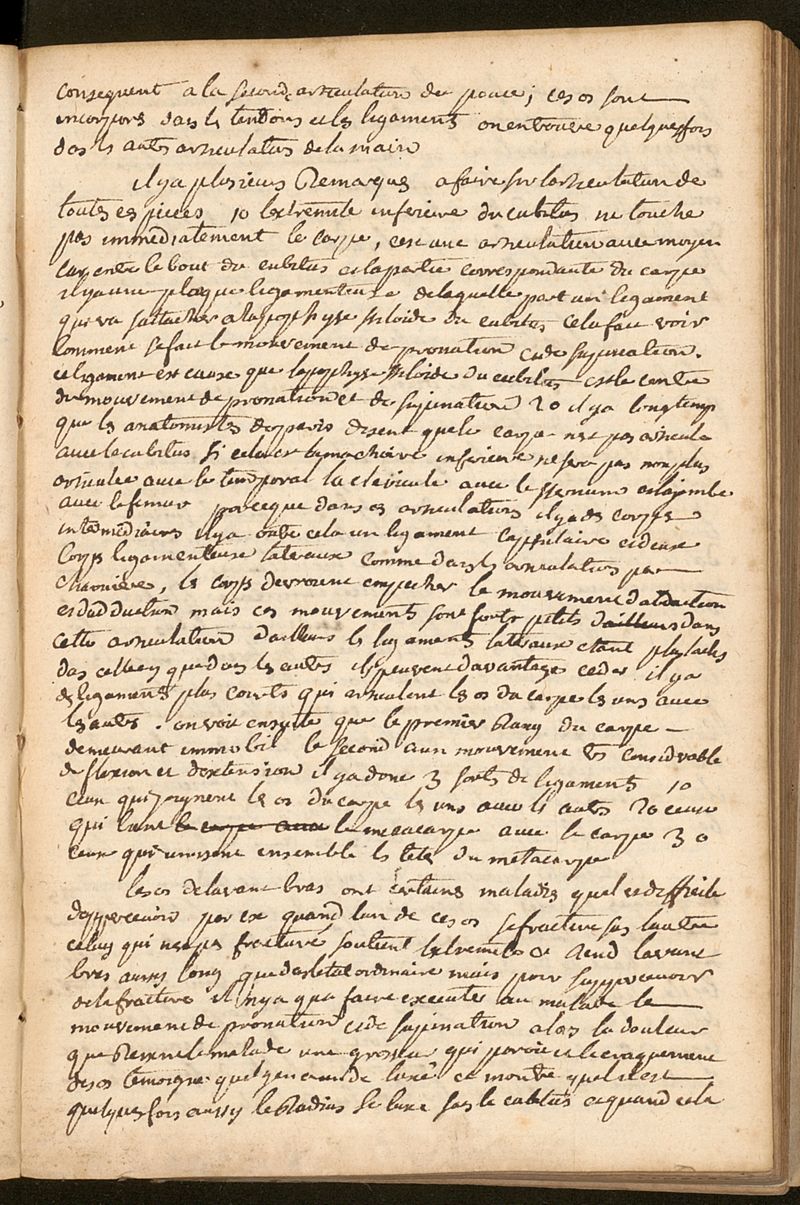 consequent a la seconde articulation du pouce; ces os sont
incorpores dans les tendons et les ligaments on en trouve quelquesfois
das ls autres articulatios de la main
il y a plusieurs Remarques a faire sur l'articulation de
toutes ces pieces 1o l'extremité inferieure du cubitus ne touche
pas immediatement le carpe, c'est une articulation avec moyen
car entre le bout du cubitus et la partie correspondante du carpe
il y a une plaque ligamenteuse de laquelle part un ligament
qui va s'attacher a l'apophyse stiloide du cubitus cela fait voir
comment se fait le mouvement de pronation et de supination.
ce ligament est cause que l'apophyse stiloide du cubitus est le centre
du mouvement de pronation et de supination 2o il y a longtemp
que les anatomistes de paris disent que le carpe n'est pas articulé
avec le cubitus si cela est la machoire inferieure ne sera pas non plus
articulée avec le temporal la clavicule avec le sternum et la jambe
avec le femur parceque dans ces articulations il y a des corps
intermediaires il y a outre cela un ligament capsulaire et deux
corps ligamenteuse lateraux comme dans ls articulatios par
charniere, ls corps devroient empecher le mouvement d'abduction
et d'adduction mais ces mouvements sont forts petits d'ailleurs dans
cette articulation d'ailleurs ls ligaments lateraux etant plus laches
das celle cy que dans les autres ils peuvent davantage ceder il y a
ds ligaments plus courts qui articulent ls os du carpe ls uns avec
ls autres. on voit ensuite que le premier Rang du carpe
demeurant immobil le second a un mouvement ts considerable
de flexion et d'extension il y a donc 3 sorts de ligaments 1o
ceux qui joignent ls os du carpe ls uns avec ls autrs 2o ceux
qui lient le carpe avec le metacarpe avec le carpe 3o
ceux qui unissent ensemble ls tets du metacarpe
les os de l'avant bras ont certains maladis quel est difficile
d'appercevoir par ex quand l'un de ces os se fracture sas l'autre
celuy qui n'est pas fracturé soutient l'extremité et Rend l'avant
bras aussy long que das l'etat ordinaire mais pour s'appercevoir
de la fracture il n'y a qu'a faire executer au malade le
mouvement de pronation et de supination alos la douleur
que Ressent le malade une grosseur qui paroit et le craquement
des os temoigne luxé ce montre
quelques fois aussy le Radius se luxe sas le cubitus et quand cela